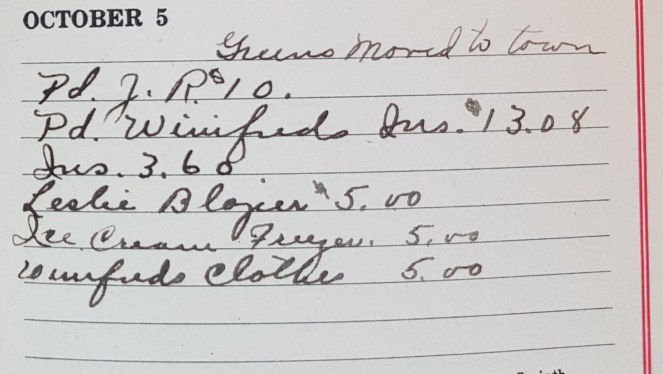 OCTOBER 5
Greens Moved to town
Pd. J. R. $10.
Pd. Winifreds Ins. $13.08
Ins. 3.68
Leslie Blazier $5.00
Ice Cream Freezer. 5.00
Winifreds Clothes 5.00